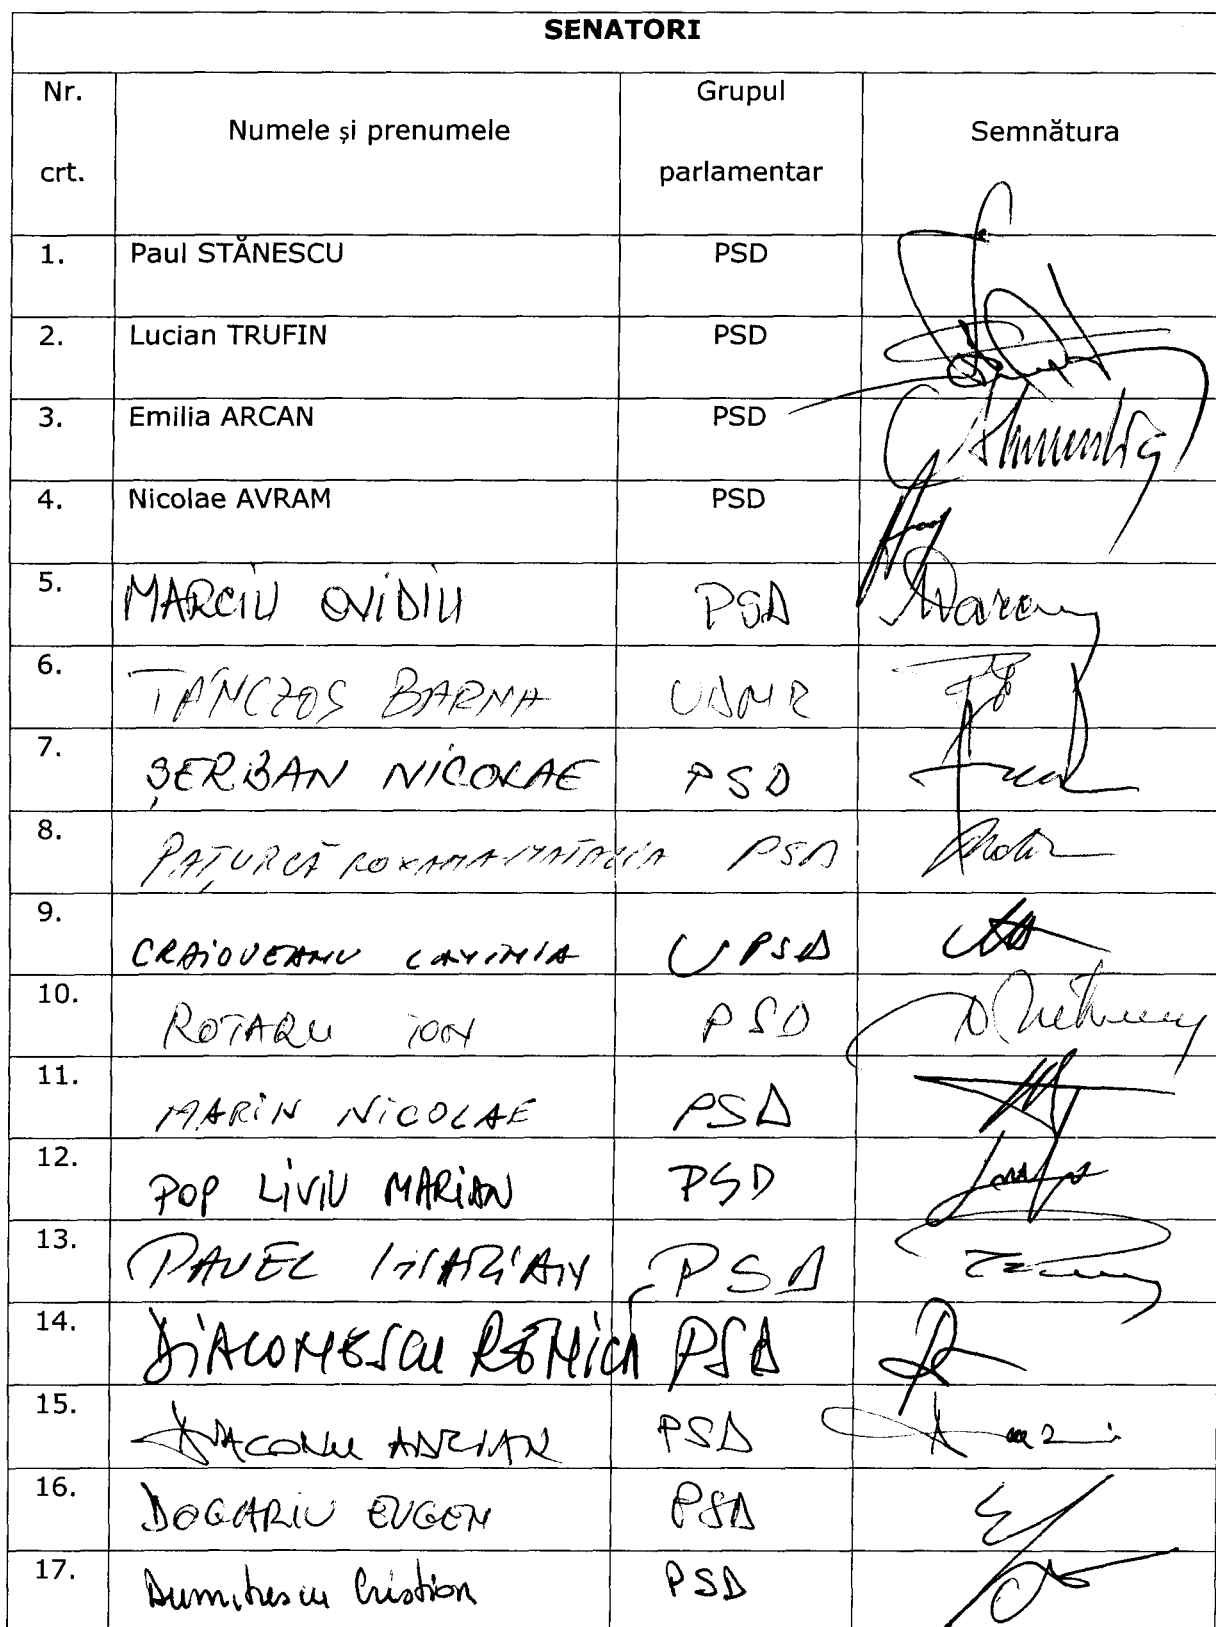 SENATORI
Nr. crt. Numele și prenumele Grupul parlamentar Semnătura
1. Paul STĂNESCU PSD
2. Lucian TRUFIN PSD
3. Emilia ARCAN PSD
4. Nicolae AVRAM PSD
5. MARCIU OVIDIU PSD
6. TANCZOS BARNA UDMR
7. ȘERBAN NICOLAE PSD
8. PAȚURCĂ ROXANA-NATALIA PSD
9. CRAIOVEANU LAVINIA PSD
10. ROTARU ION PSD
11. MARIN NICOLAE PSD
12. POP LIVIU MARIAN PSD
13. PAVEL MARIAN PSD
14. PSD
15. DIACONU ADRIAN PSD
16. DOGARIU EUGEN PSD
17. Dumitrescu Cristian PSD